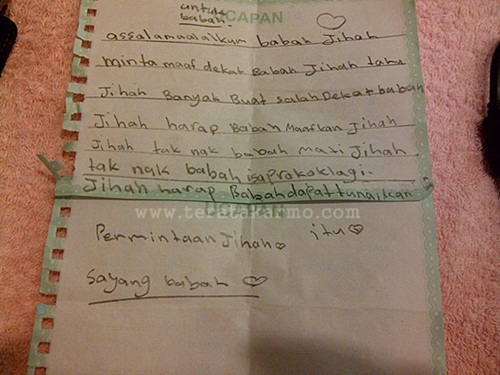 untuk
babah
CAPAN
assalamualaikum babah Jihah
minta maaf dekat Babah Jihah tahu
Jihah Banyak Buat salah Dekat babah
Jihah harap Babah Maafkan Jihah
Jihah tak nak babah mati Jihah
tak nak babah isaprokoklagi..
Jihah harap Babah dapat tunaikan
www.teratakarmo.com
Permintaan Jihah itu
Sayang babah